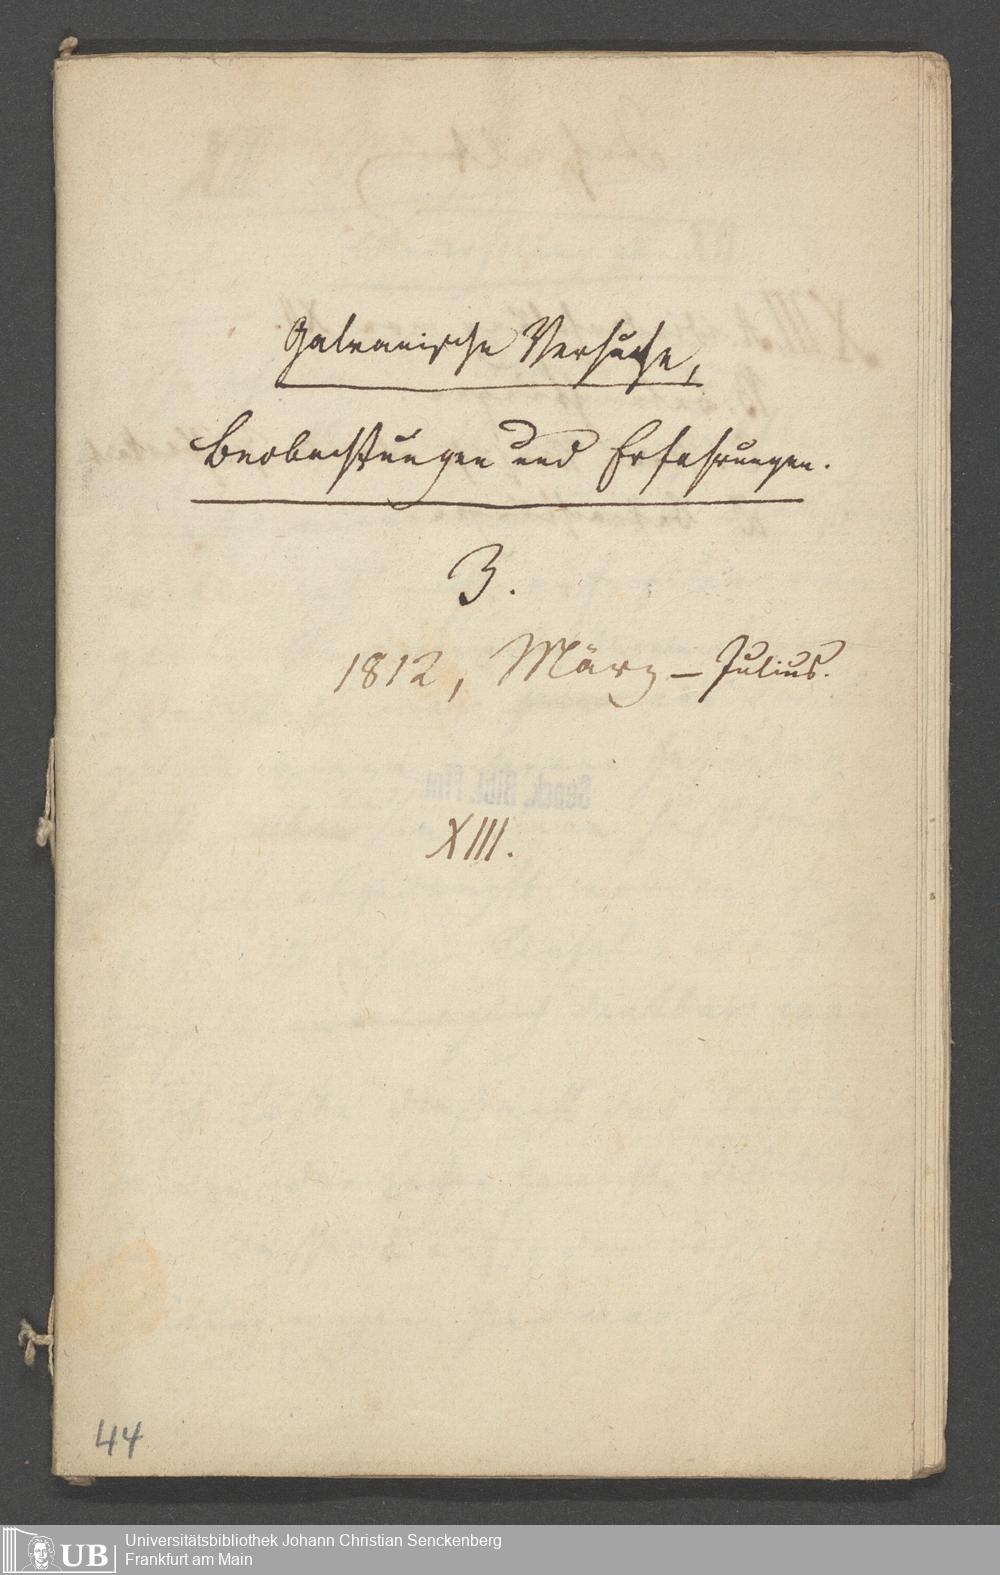 Galvanische Versuche,
Beobachtungen und Erfahrungen.
3.
1812, März – Julius.
Senck. Bibl. Ffm.
XIII.
44
UB
Universitätsbibliothek Johann Christian Senckenberg
Frankfurt am Main